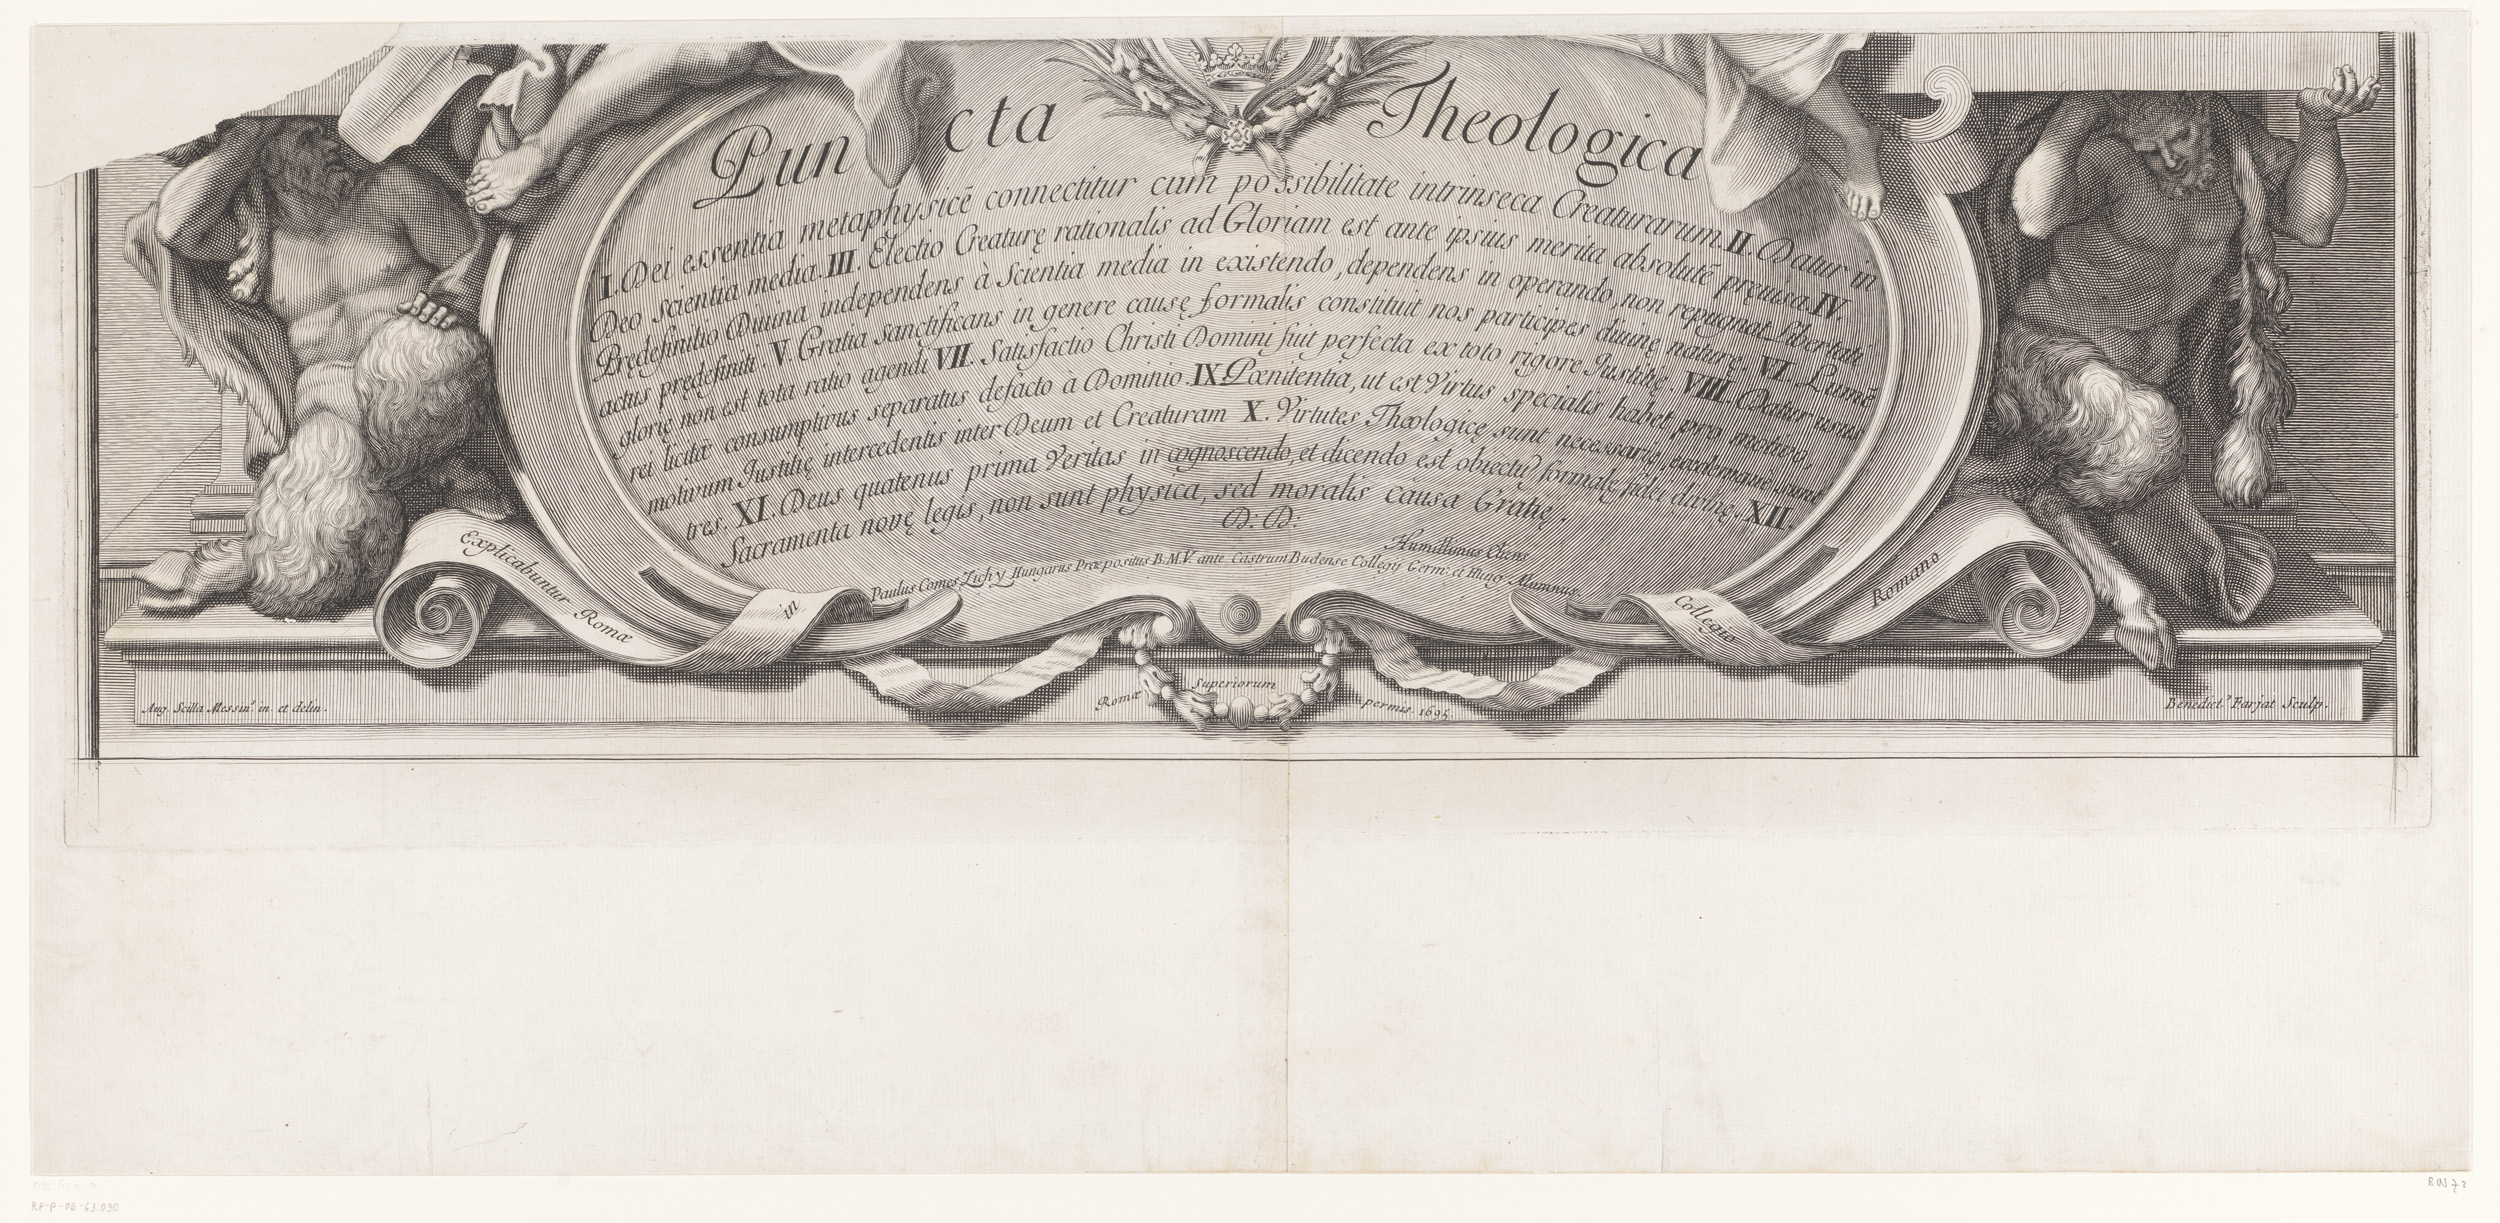 Puncta Theologica
I. Dei essentia metaphysicē connectitur cum possibilitate intrinseca Creaturarum. II. Datur in
Deo scientia media. III. Electio Creaturę rationalis ad Gloriam est ante ipsius merita absolutē pręuisa. IV.
Prędefinitio Diuina independens à Scientia media in existendo, dependens in operando, non repugnat Libertati
actus prędefiniti. V. Gratia Sanctificans in genere causę formalis constituit nos participes diuinę naturę. VI. Lumē
glorię non est tota ratio agendi VII. Satisfactio Christi Domini fuit perfecta ex toto rigore Justitię. VIII. Datur usus
rei licitæ consumptivus separatus defacto à Dominio. IX. Pœnitentia, ut est Virtus specialis habet pro motivo,
motivum Justitię intercedentis inter Deum et Creaturam X. Virtutes Theologicę sunt necessarię, eædemque sunt
tres. XI. Deus quatenus prima Veritas in cognoscendo, et dicendo est obiectū formale fidei divinę. XII.
Sacramenta novę legis, non sunt physica, sed moralis causa Gratię.
D: D:
Humillimus Cliens
Paulus Comes Zichy Hungarus Præpositus B.M.V. ante Castrum Budense Collegij Germ: et Hung: Alumnus
Explicabuntur Romæ in Collegio Romano
Romæ Superiorum permis. 1695
Aug. Scilla Messin.s in. et delin.
Benedict.s Farjat Sculp.
RP-P-OB-63.090